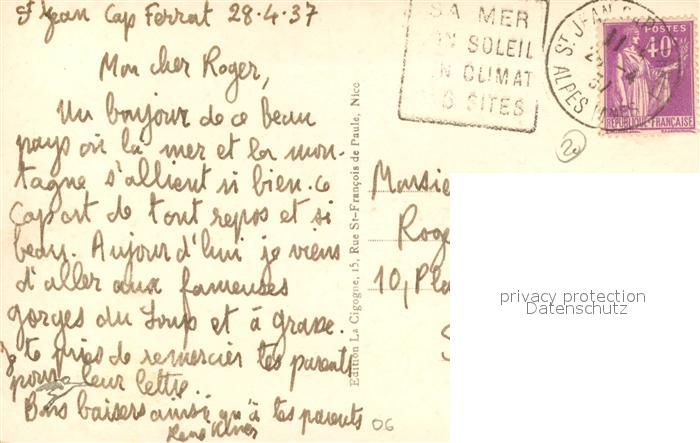 St Jean Cap Ferrat 28.4.37
Mon cher Roger,
Un bonjour de ce beau
pays où la mer et la mon-
tagne s'allient si bien. Ce
Cap est de tout repos et si
beau. Aujourd'hui je viens
d'aller aux fameuses
gorges du Loup et à Grasse.
Je te pries de remercier tes parents
pour leur lettre.
Bons baisers ainsi qu'à tes parents
Edition La Cigogne, 15, Rue St-François de Paule, Nice
SA MER
SON SOLEIL
SON CLIMAT
SES SITES
ST JEAN CAP
ALPES MMES
POSTES
40c
REPUBLIQUE FRANÇAISE
Monsie
Roge
10, Pla
S
privacy protection
Datenschutz
06